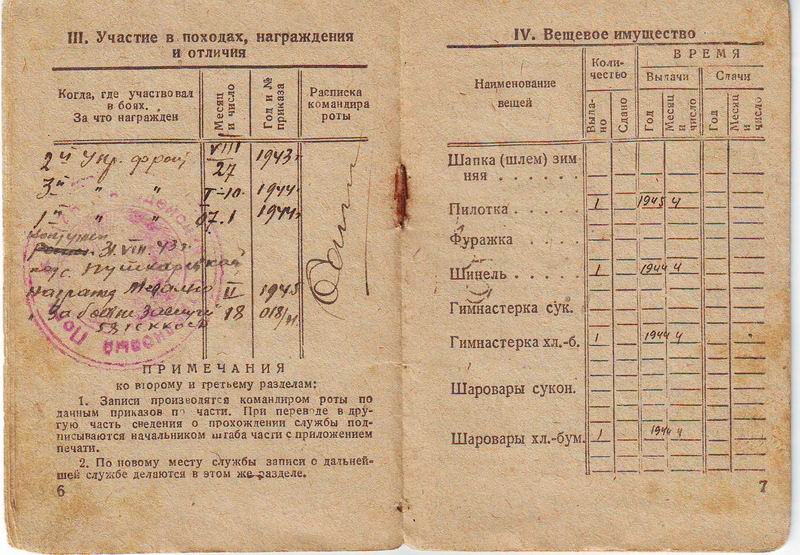 III. Участие в походах, награждения
и отличия
Когда, где участвовал
в боях.
За что награждён
Месяц
и число
Год и №
приказа
Расписка
командира
роты
2й Укр. фронт VIII 27 1943г
3й " " I-10. 1944г
1й " " 07.1 1944г
контужен
31.VIII.43г
под с. Пушкарской
награжд Медалью II 1945
За боевые Заслуги 18 018/н
ПРИМЕЧАНИЯ
ко второму и третьему разделам:
1. Записи производятся командиром роты по
данным приказов по части. При переводе в дру-
гую часть сведения о прохождении службы под-
писываются начальником штаба части с приложением
печати.
2. По новому месту службы записи о дальней-
шей службе делаются в этом же разделе.
6
IV. Вещевое имущество
Наименование
вещей
Коли-
чество
ВРЕМЯ
Выдачи
Сдачи
Выда-
но
Сдано
Год
Месяц
и
число
Год
Месяц
и
число
Шапка (шлем) зим
няя . . . . . .
Пилотка . . . . . 1 1945 4
Фуражка
Шинель . . . . . 1 1944 4
Гимнастерка сук.
Гимнастерка хл.-б. 1 1944 4
Шаровары сукон.
Шаровары хл.-бум. 1 1944 4
7